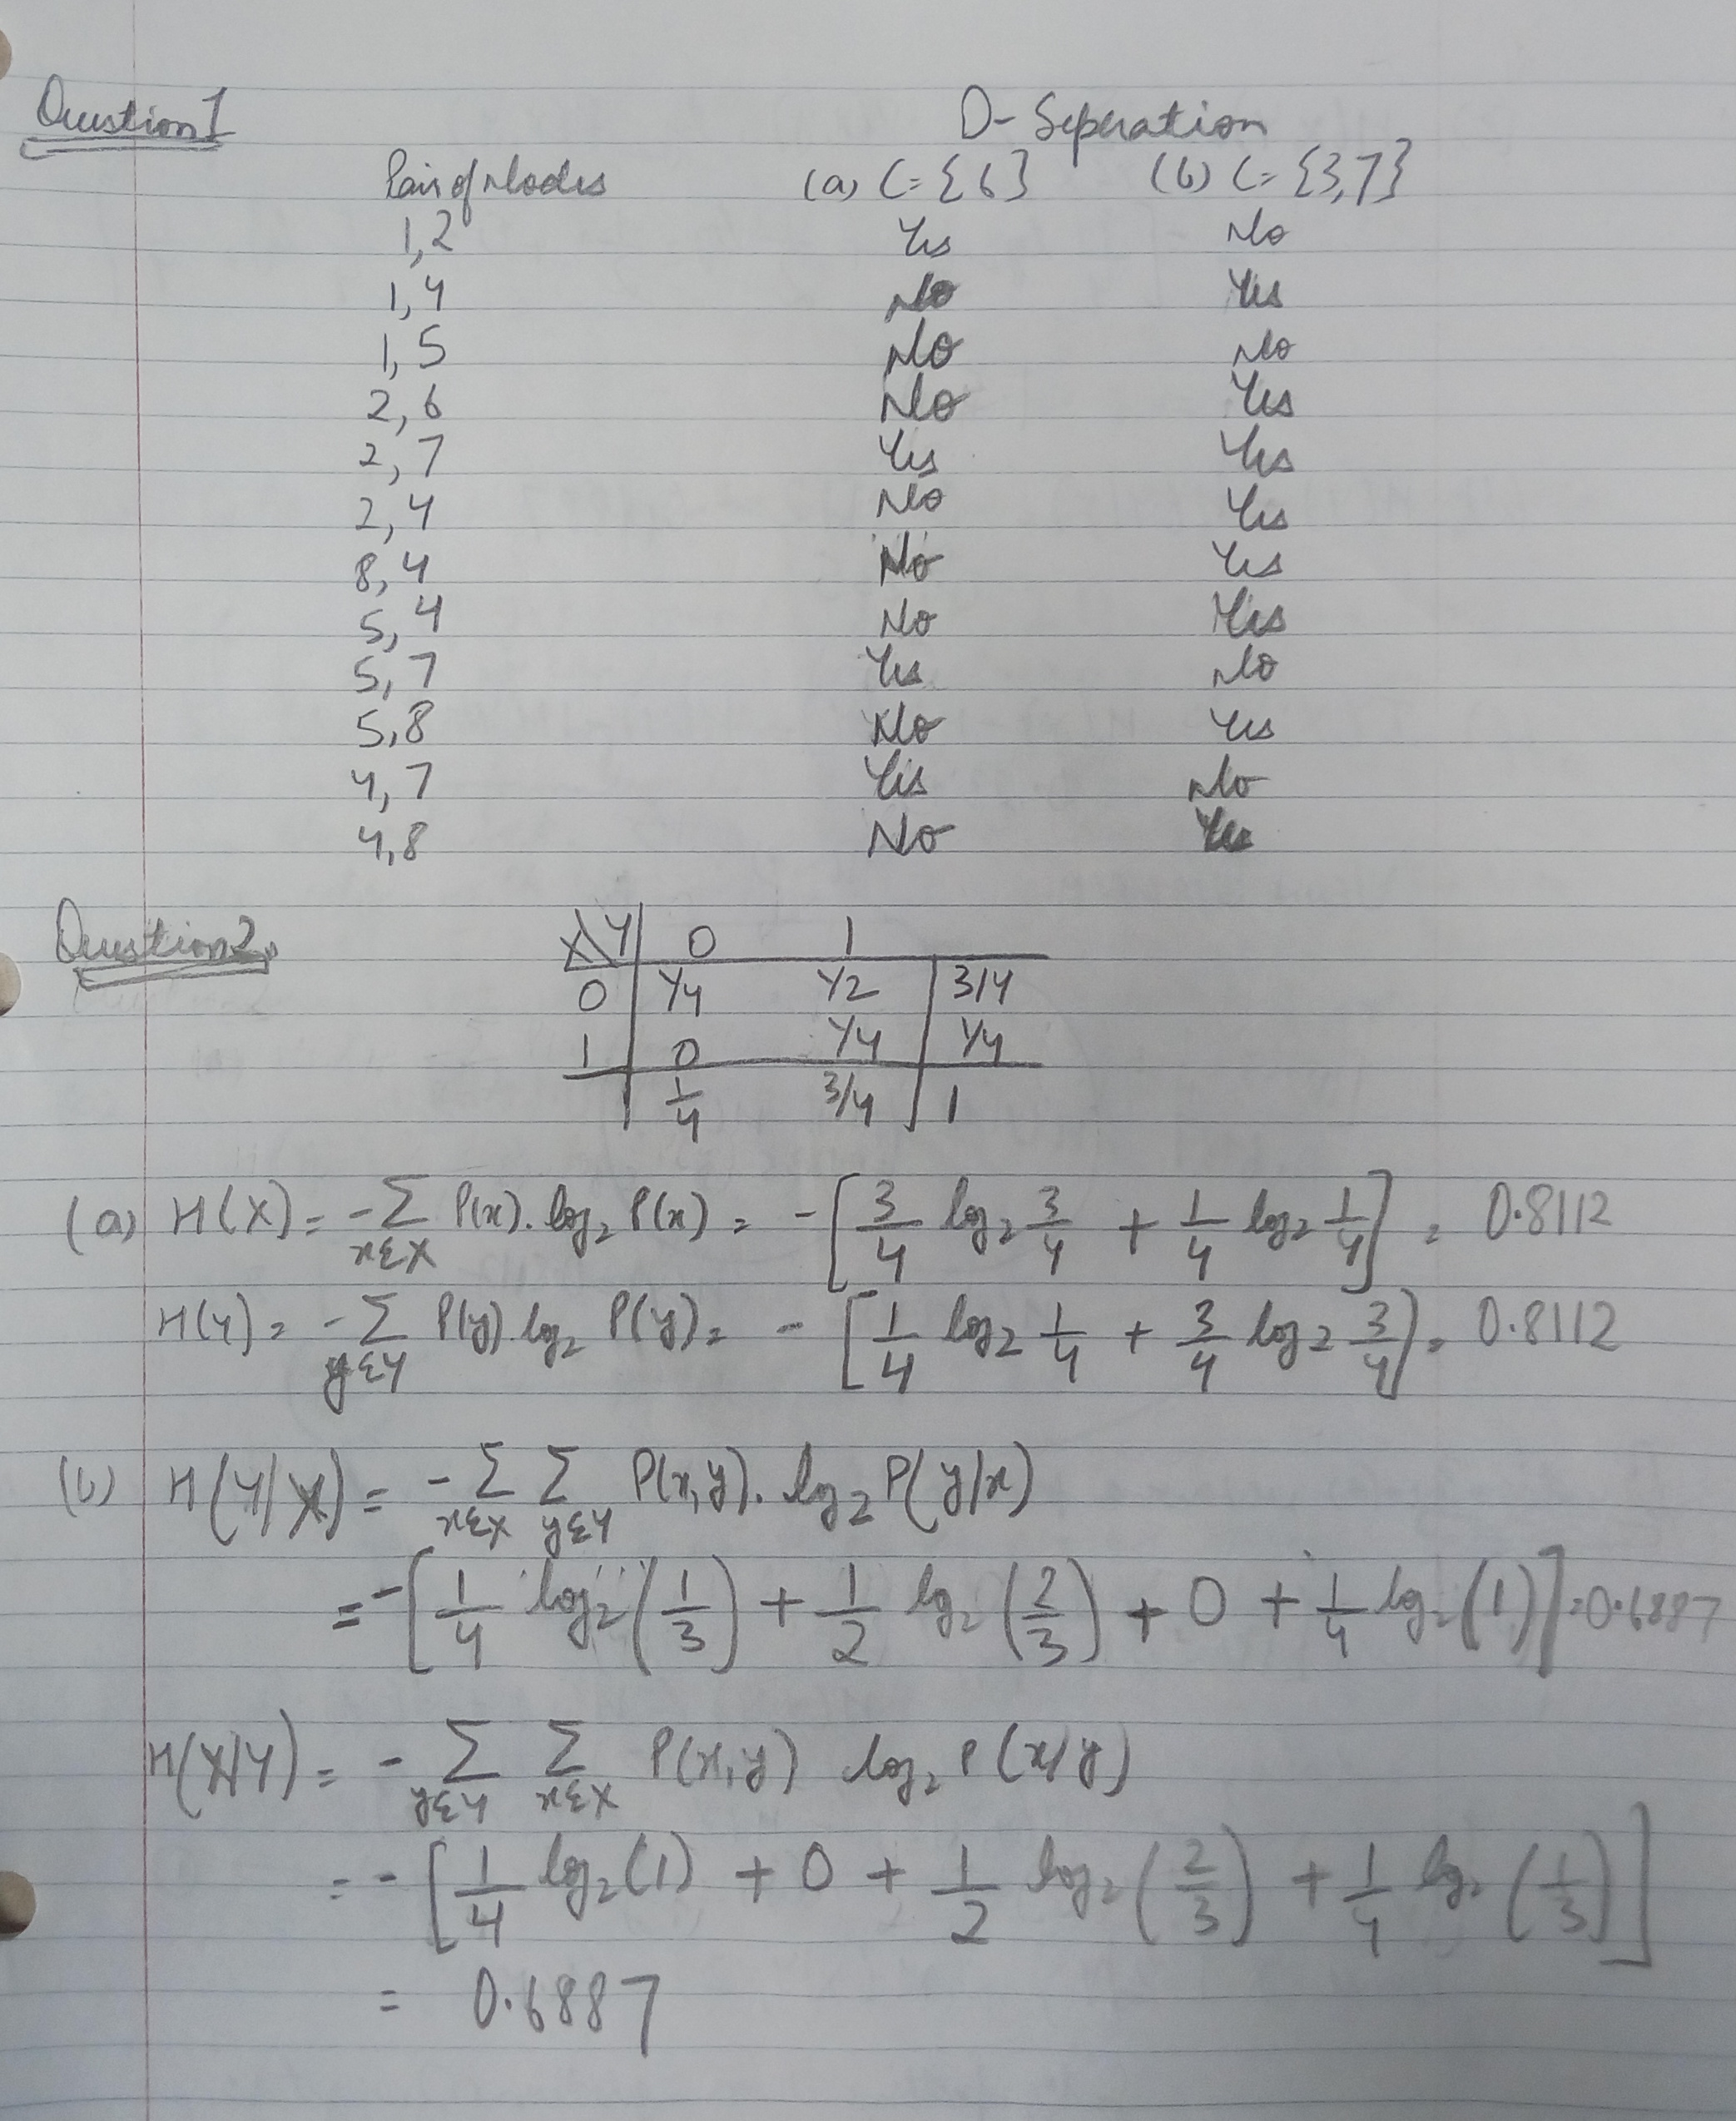 Question 1
D-Seperation
Pair of Nodes (a) C = {6} (b) C = {3,7}
1,2 Yes No
1,4 No Yes
1,5 No No
2,6 No Yes
2,7 Yes Yes
2,4 No Yes
8,4 No Yes
5,4 No Yes
5,7 Yes No
5,8 No Yes
4,7 Yes No
4,8 No Yes
Question 2.
X\Y 0 1
0 1/4 1/2 3/4
1 0 1/4 1/4
1/4 3/4 1
(a) H(X) = -∑_{x∈X} P(x). log₂ P(x) = -[3/4 log₂ 3/4 + 1/4 log₂ 1/4] = 0.8112
H(Y) = -∑_{y∈Y} P(y) log₂ P(y) = -[1/4 log₂ 1/4 + 3/4 log₂ 3/4] = 0.8112
(b) H(Y/X) = -∑_{x∈X} ∑_{y∈Y} P(x,y). log₂ P(y/x)
= -[1/4 log₂ (1/3) + 1/2 log₂ (2/3) + 0 + 1/4 log₂ (1)] = 0.6887
H(X/Y) = -∑_{y∈Y} ∑_{x∈X} P(x,y) log₂ P(x/y)
= -[1/4 log₂(1) + 0 + 1/2 log₂ (2/3) + 1/4 log₂ (1/3)]
= 0.6887